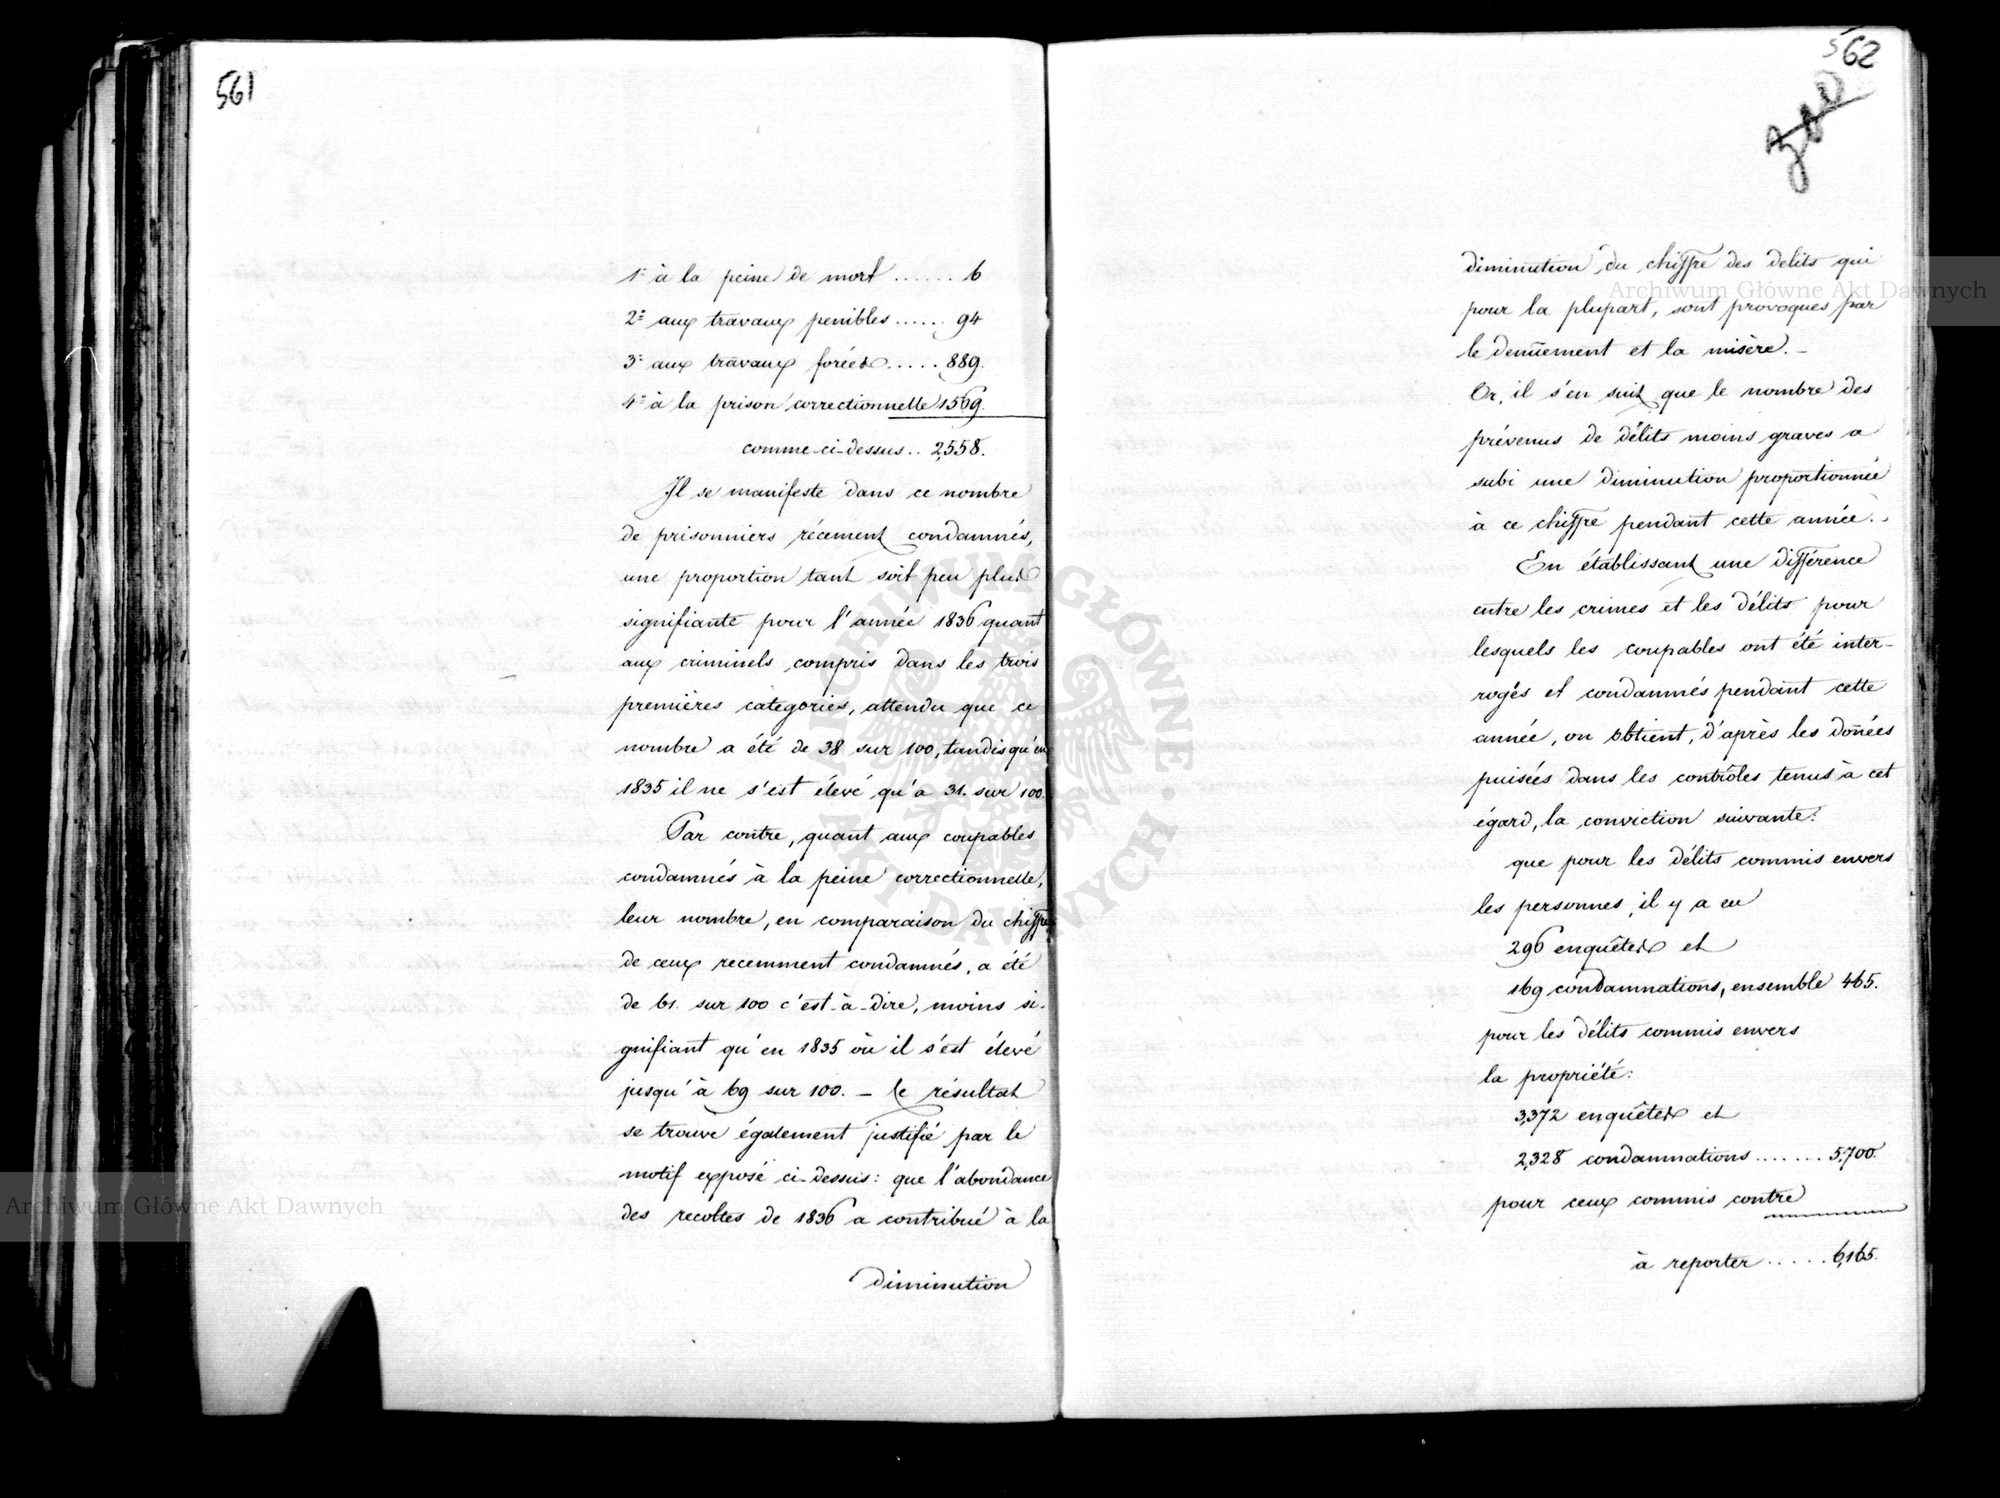 561
1° à la peine de mort ...... 6
2° aux travaux penibles ...... 94
3° aux travaux forcés ..... 889.
4° à la prison correctionnelle 1569.
comme ci-dessus .. 2,558.
Il se manifeste dans ce nombre
de prisonniers récement condamnés,
une proportion tant soit peu plus
signifiante pour l'année 1836 quant
aux criminels compris dans les trois
premières catégories, attendu que ce
nombre a été de 38 sur 100, tandis qu'en
1835 il ne s'est élevé qu'à 31. sur 100.
Par contre, quant aux coupables
condamnés à la peine correctionnelle,
leur nombre, en comparaison du chiffre
de ceux recemment condamnés, a été
de 61. sur 100 c'est-à-dire, moins si-
gnifiant qu'en 1835 où il s'est élevé
jusqu'à 69 sur 100. - Ce résultat
se trouve également justifié par le
motif exposé ci-dessus: que l'abondance
des recoltes de 1836 a contribué à la
diminution
562
diminution du chiffre des delits qui
pour la plupart, sont provoqués par
le denûement et la misère. -
Or, il s'en suit que le nombre des
prévenus de délits moins graves a
subi une diminution proportionnée
à ce chiffre pendant cette année. -
En établissant une différence
entre les crimes et les délits pour
lesquels les coupables ont été inter-
rogés et condamnés pendant cette
année, on obtient, d'après les donées
puisées dans les contrôles tenus à cet
égard, la conviction suivante:
que pour les délits commis envers
les personnes, il y a eu
296 enquêtes et
169 condamnations, ensemble 465.
pour les délits commis envers
la propriété:
3,372 enquêtes et
2,328 condamnations ....... 5,700.
pour ceux commis contre
à reporter ..... 6,165.
Archiwum Główne Akt Dawnych
Archiwum Główne Akt Dawnych
ARCHIWUM GŁÓWNE AKT DAWNYCH